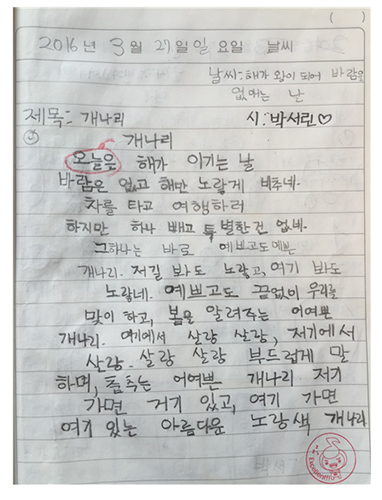 ( )
2016년 3월 27일 일 요일 날씨
날씨: 해가 왕이 되어 바람을
없애는 날
제목: 개나리 시: 박서린♡
개나리
오늘은 해가 이기는 날
바람은 없고 해만 노랗게 비추네.
차를 타고 여행하러
하지만 하나 빼고 특별한건 없네.
그하나는 바로 예쁘고도 예쁜
개나리. 저길 봐도 노랗고, 여기 봐도
노랗네. 예쁘고도 끝없이 우리를
맞이 하고, 봄을 알려주는 어여쁜
개나리. 여기에서 살랑 살랑, 저기에서
살랑. 살랑 살랑 부드럽게 말
하며, 춤추는 어여쁜 개나리 저기
가면 거기 있고, 여기 가면
여기 있는 아름다운 노랑색 개나리
박서